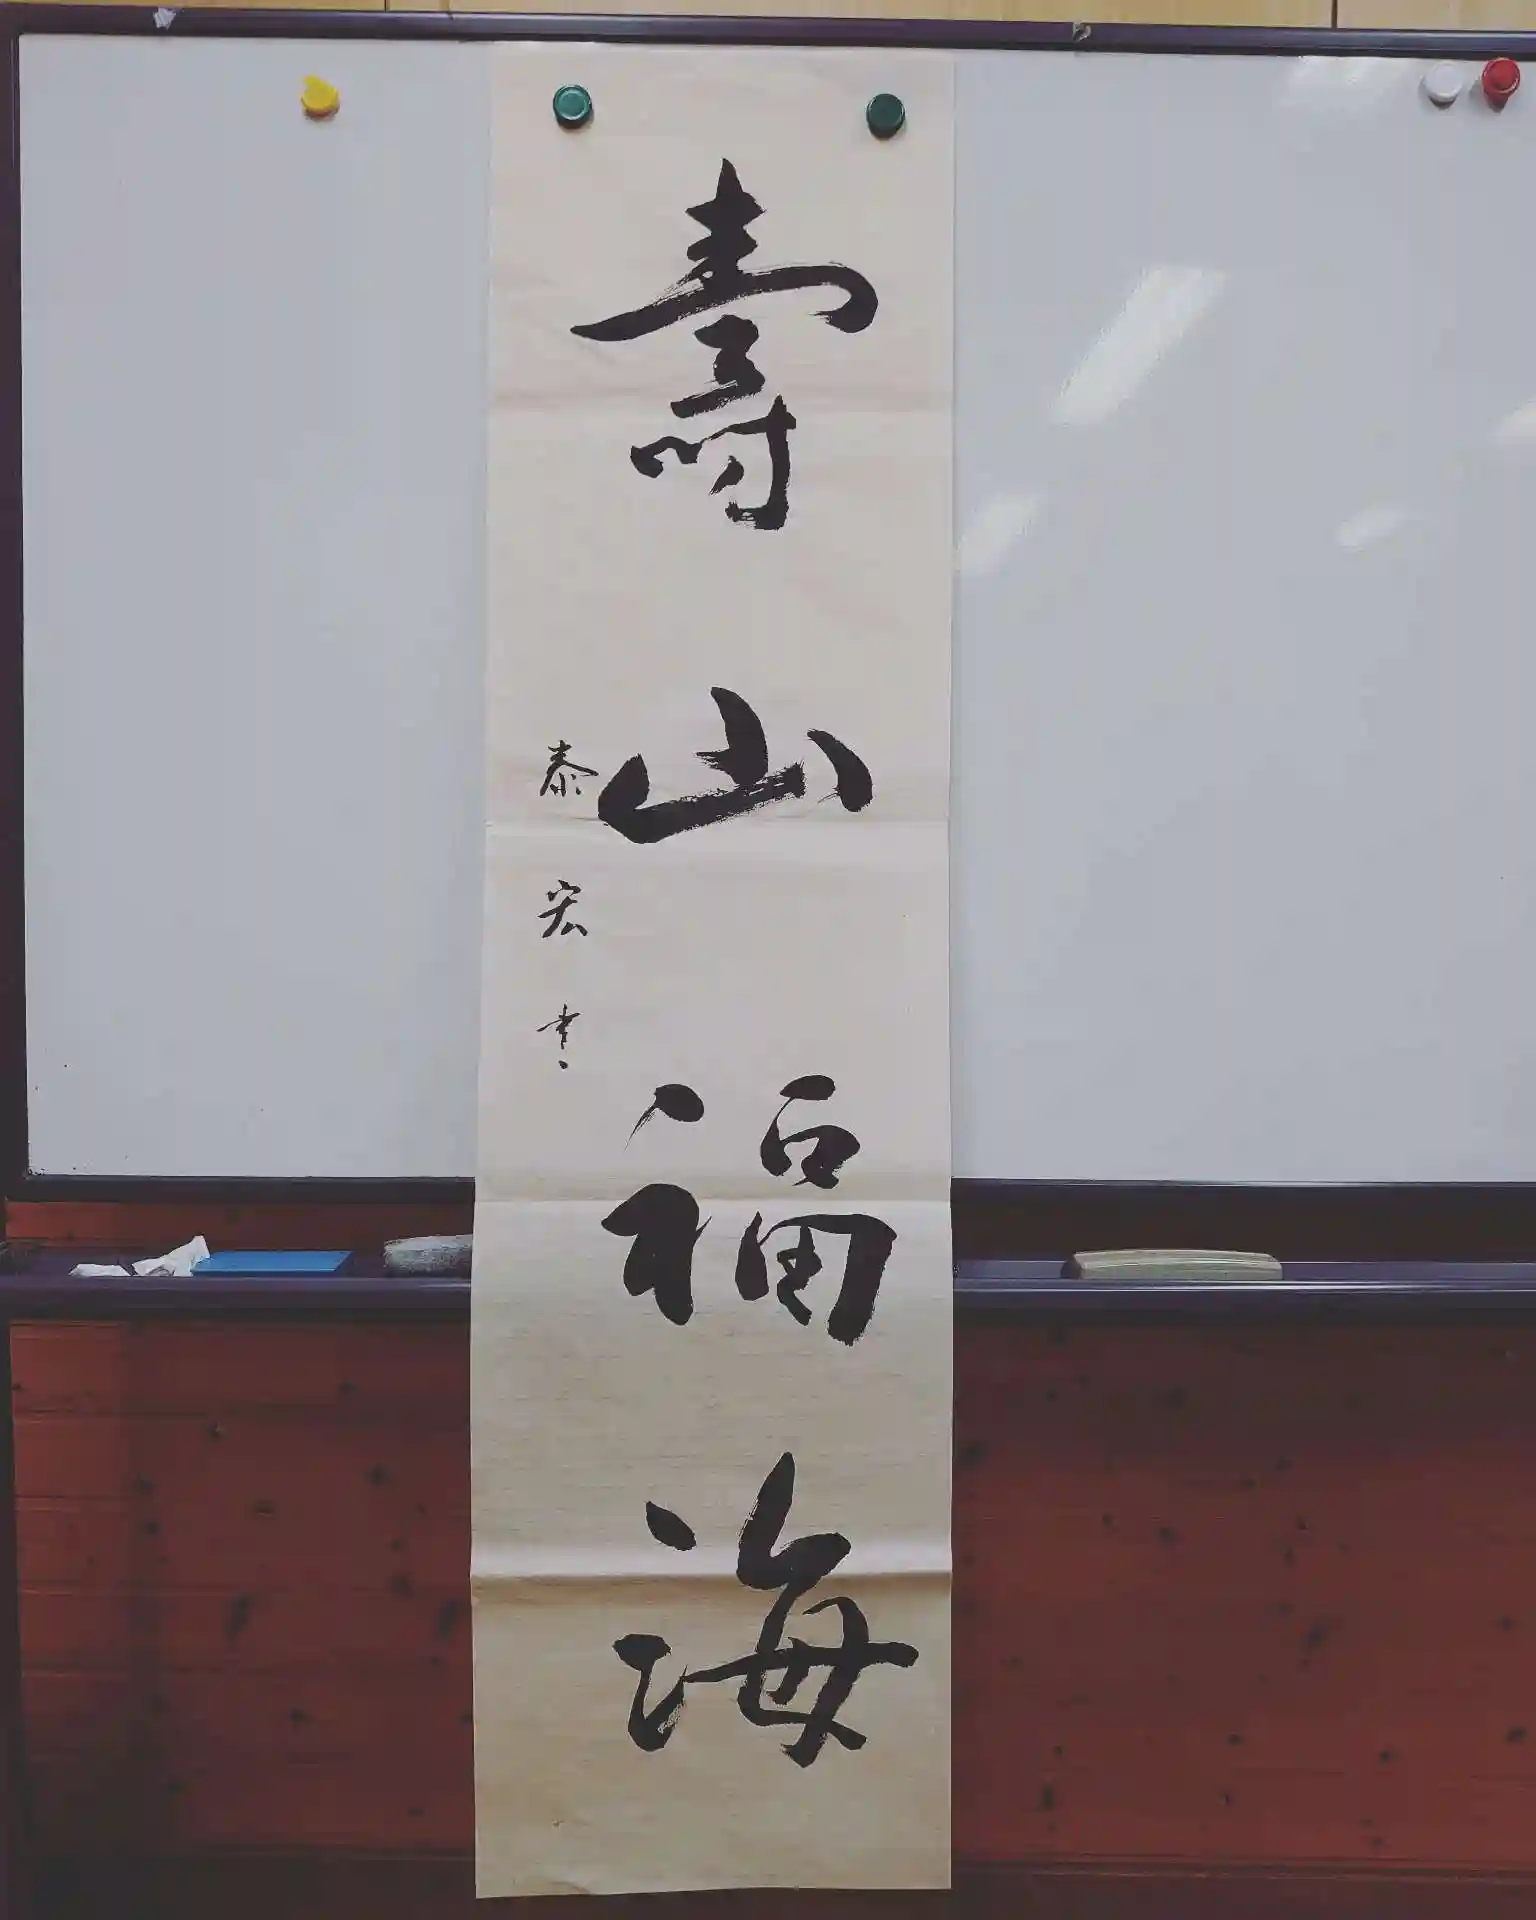 壽山福海
泰宏書